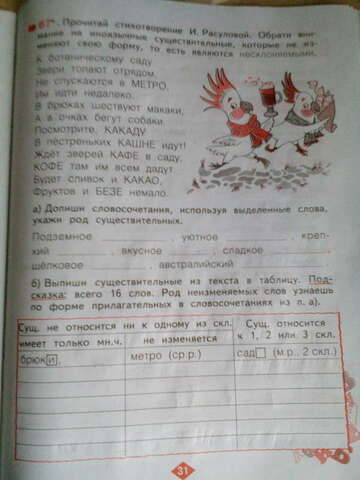 67. Прочитай стихотворение И. Расуловой. Обрати вни-
мание на иноязычные существительные, которые не из-
меняют свою форму, то есть являются несклоняемыми.
К ботаническому саду
Звери топают отрядом,
Не спускаются в МЕТРО,
Им идти недалеко.
В брюках шествуют макаки,
А в очках бегут собаки.
Посмотрите, КАКАДУ
В пёстреньких КАШНЕ идут!
Ждёт зверей КАФЕ в саду.
КОФЕ там им всем дадут
Будет сливок и КАКАО,
Фруктов и БЕЗЕ немало.
а) Допиши словосочетания, используя выделенные слова,
укажи род существительных.
Подземное , уютное , креп-
кий , вкусное , сладкое ,
шёлковое , австралийский
б) Выпиши существительные из текста в таблицу. Под-
сказка: всего 16 слов. Род неизменяемых слов узнаешь
по форме прилагательных в словосочетаниях из п. а).
Сущ. не относится ни к одному из скл. Сущ. относится
имеет только мн.ч. не изменяется к 1, 2 или 3 скл.
брюки, метро (ср.р.) сад (м.р., 2 скл.)
31